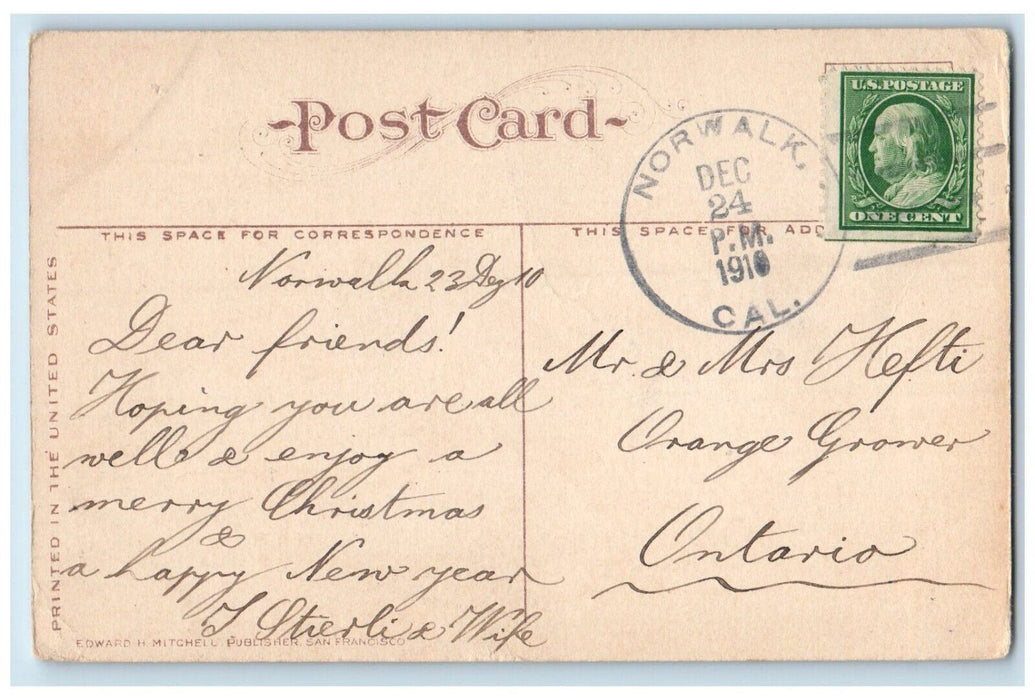 Post Card
U.S. POSTAGE
ONE CENT
NORWALK,
DEC
24
P.M.
1910
CAL.
THIS SPACE FOR CORRESPONDENCE
THIS SPACE FOR ADD
PRINTED IN THE UNITED STATES
Norwalk 23 Dez 10
Dear friends!
Hoping you are all
well & enjoy a
merry Christmas
&
a happy New year
J Stierli & Wife
Mr. & Mrs Hefti
Orange Grower
Ontario
EDWARD H. MITCHELL, PUBLISHER, SAN FRANCISCO